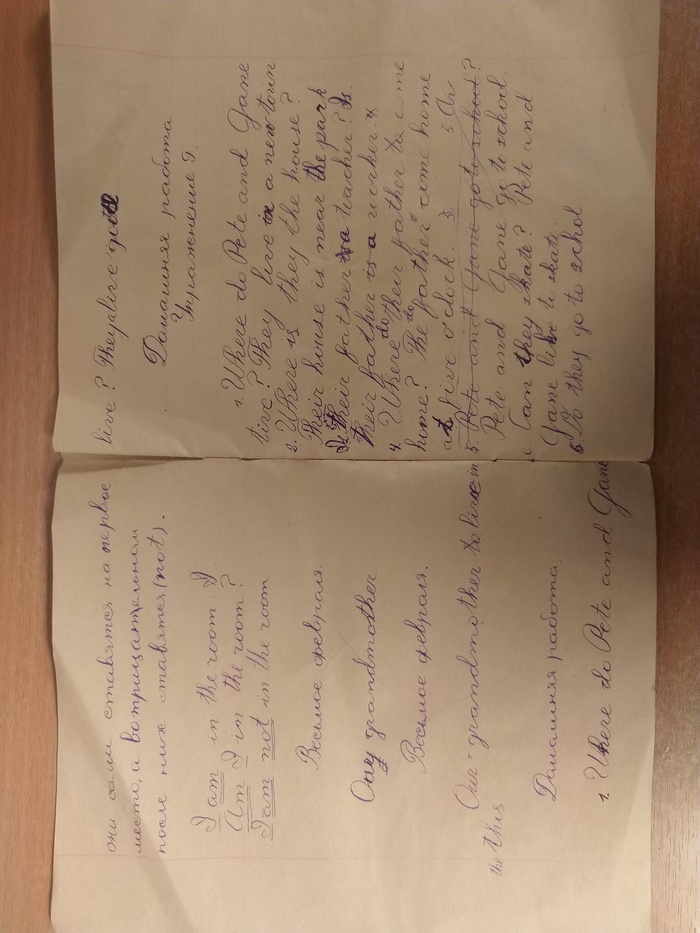 они сами ставятся на первое
место, а в отрицательном
после них ставятся (not).
I am in the room. I
Am I in the room?
I am not in the room
Восьмое февраля.
grandmother
Восьмое февраля.
Our grandmother to live in
the this
Домашняя работа
1. Where do Pete and Jane
live? They live
Домашняя работа
Упражнение 9.
1. Where do Pete and Jane
live? They live in a new town
2. Where is they the house?
Their house is near the park
3. Is their father a teacher? Is
Their father is a worker
4. Where do their father to come
home? The father come home
at five o'clock.
5. Pete and Jane go to school?
Pete and Jane go to school.
Can they skate? Pete and
Jane like to skate
6. Do they go to school